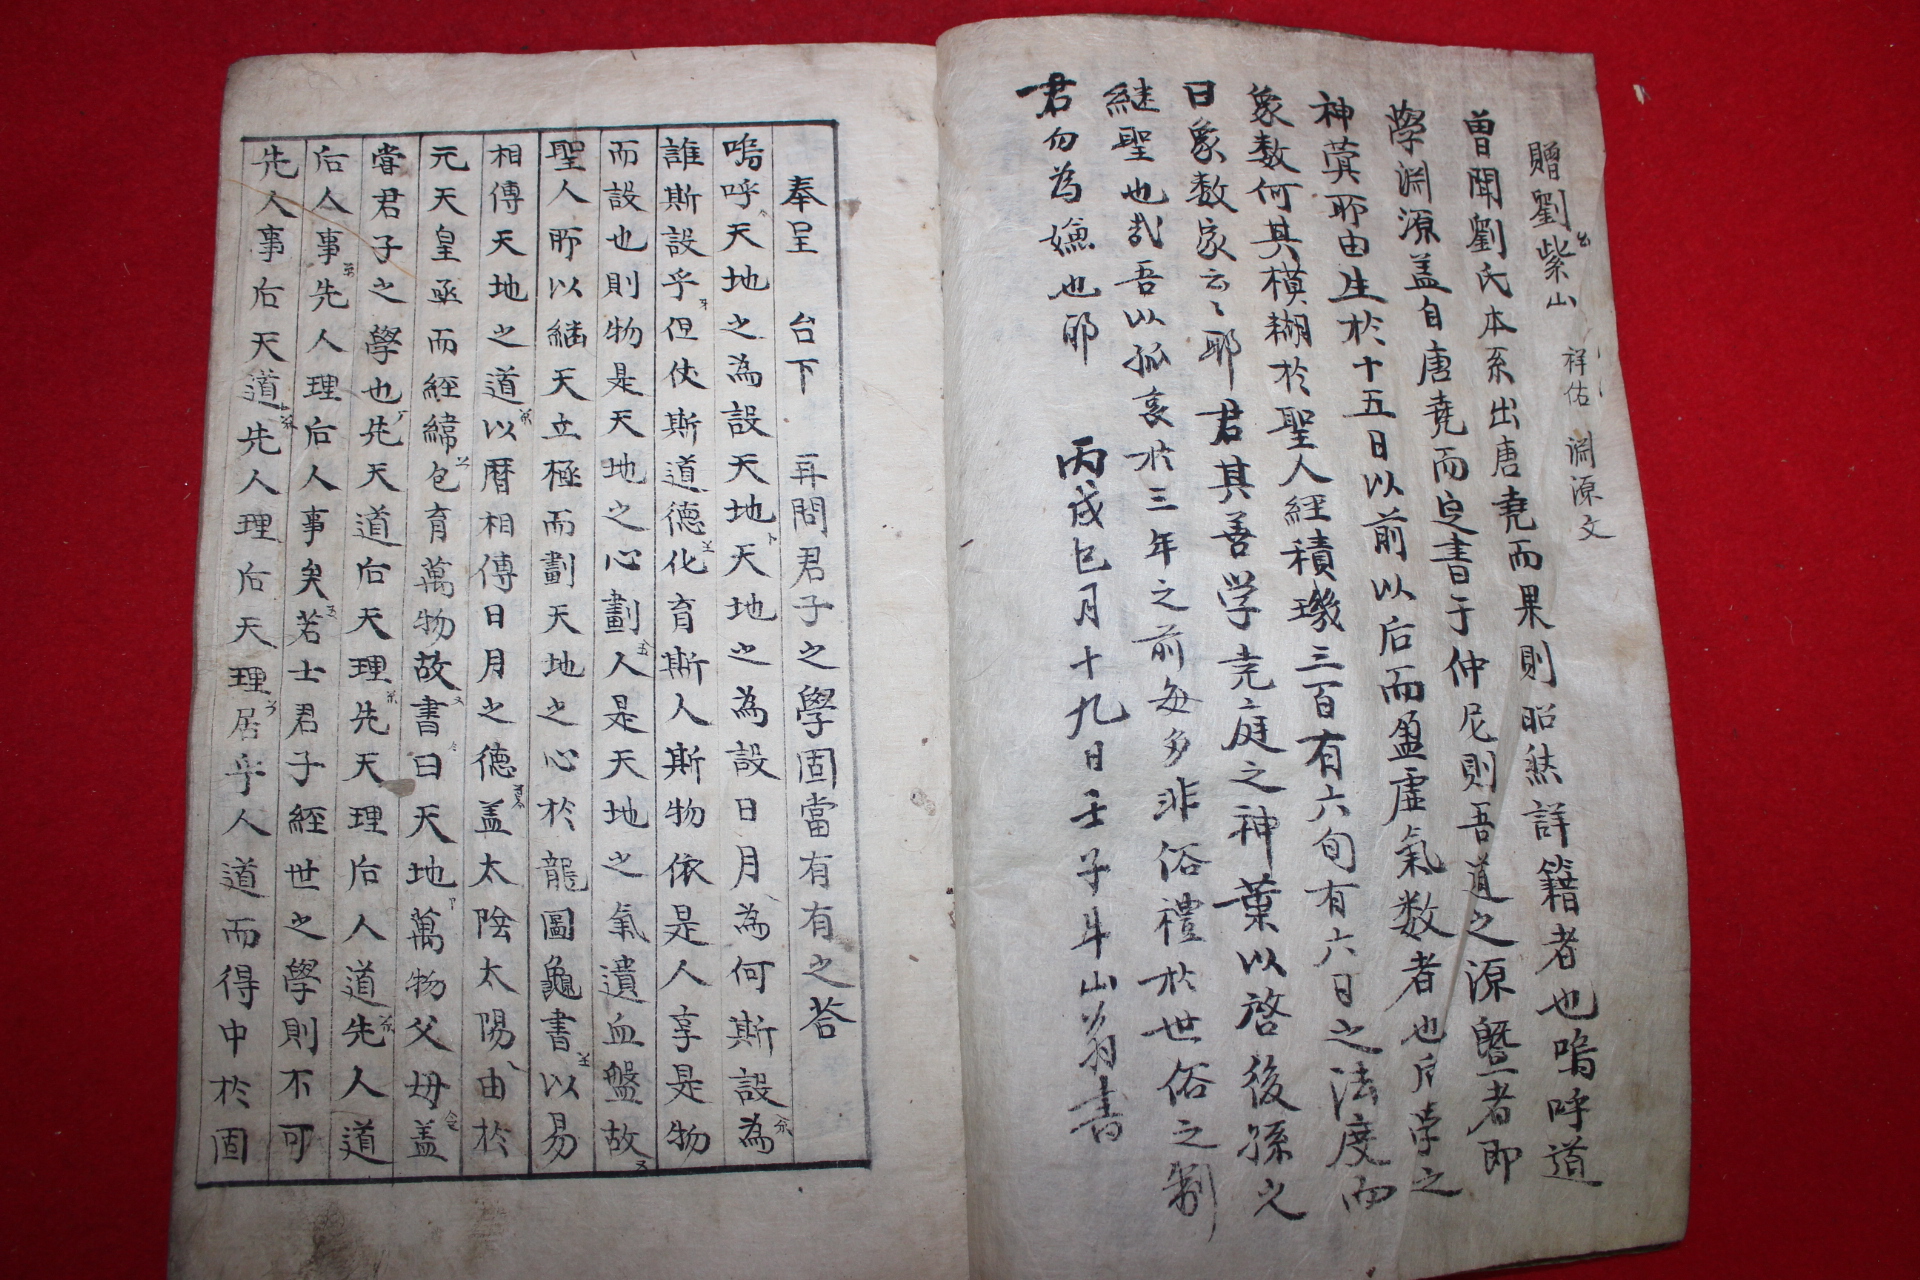 贈劉紫山 祥佑 淵源文
曾聞劉氏本系出唐堯而果則昭然詳籍者也嗚呼道
學淵源盖自唐堯而定書于仲尼則吾道之源曁者即
神蓂耶由生於十五日以前以后而盈虛氣数者也
象数何其模糊於聖人經積璣三百有六旬有六日之法度而
曰象数家云〻耶 君其善学堯庭之神葉以啓後孫之
継聖也哉吾以孤哀於三年之前每多非俗禮於世俗之制
君勿為嫌也耶 丙戌巳月十九日壬子斗山翁書
奉呈 台下 再問君子之學固當有有之荅
嗚呼天地之為設天地天地之為設日月為何斯設為
誰斯設乎但使斯道德化育斯人斯物依是人享是物
而設也則物是天地之心劃人是天地之氣遺血盤故
聖人所以継天立極而劃天地之心於龍圖龜書以易
相傳天地之道以曆相傳日月之德盖太陰太陽由於
元天皇極而經緯包育萬物故書曰天地萬物父母盖
甞君子之學也先天道后天理先天理后人道先人道
后人事先人理后人事矣若士君子經世之學則不可
先人事后天道先人理后天理居乎人道而得中於固